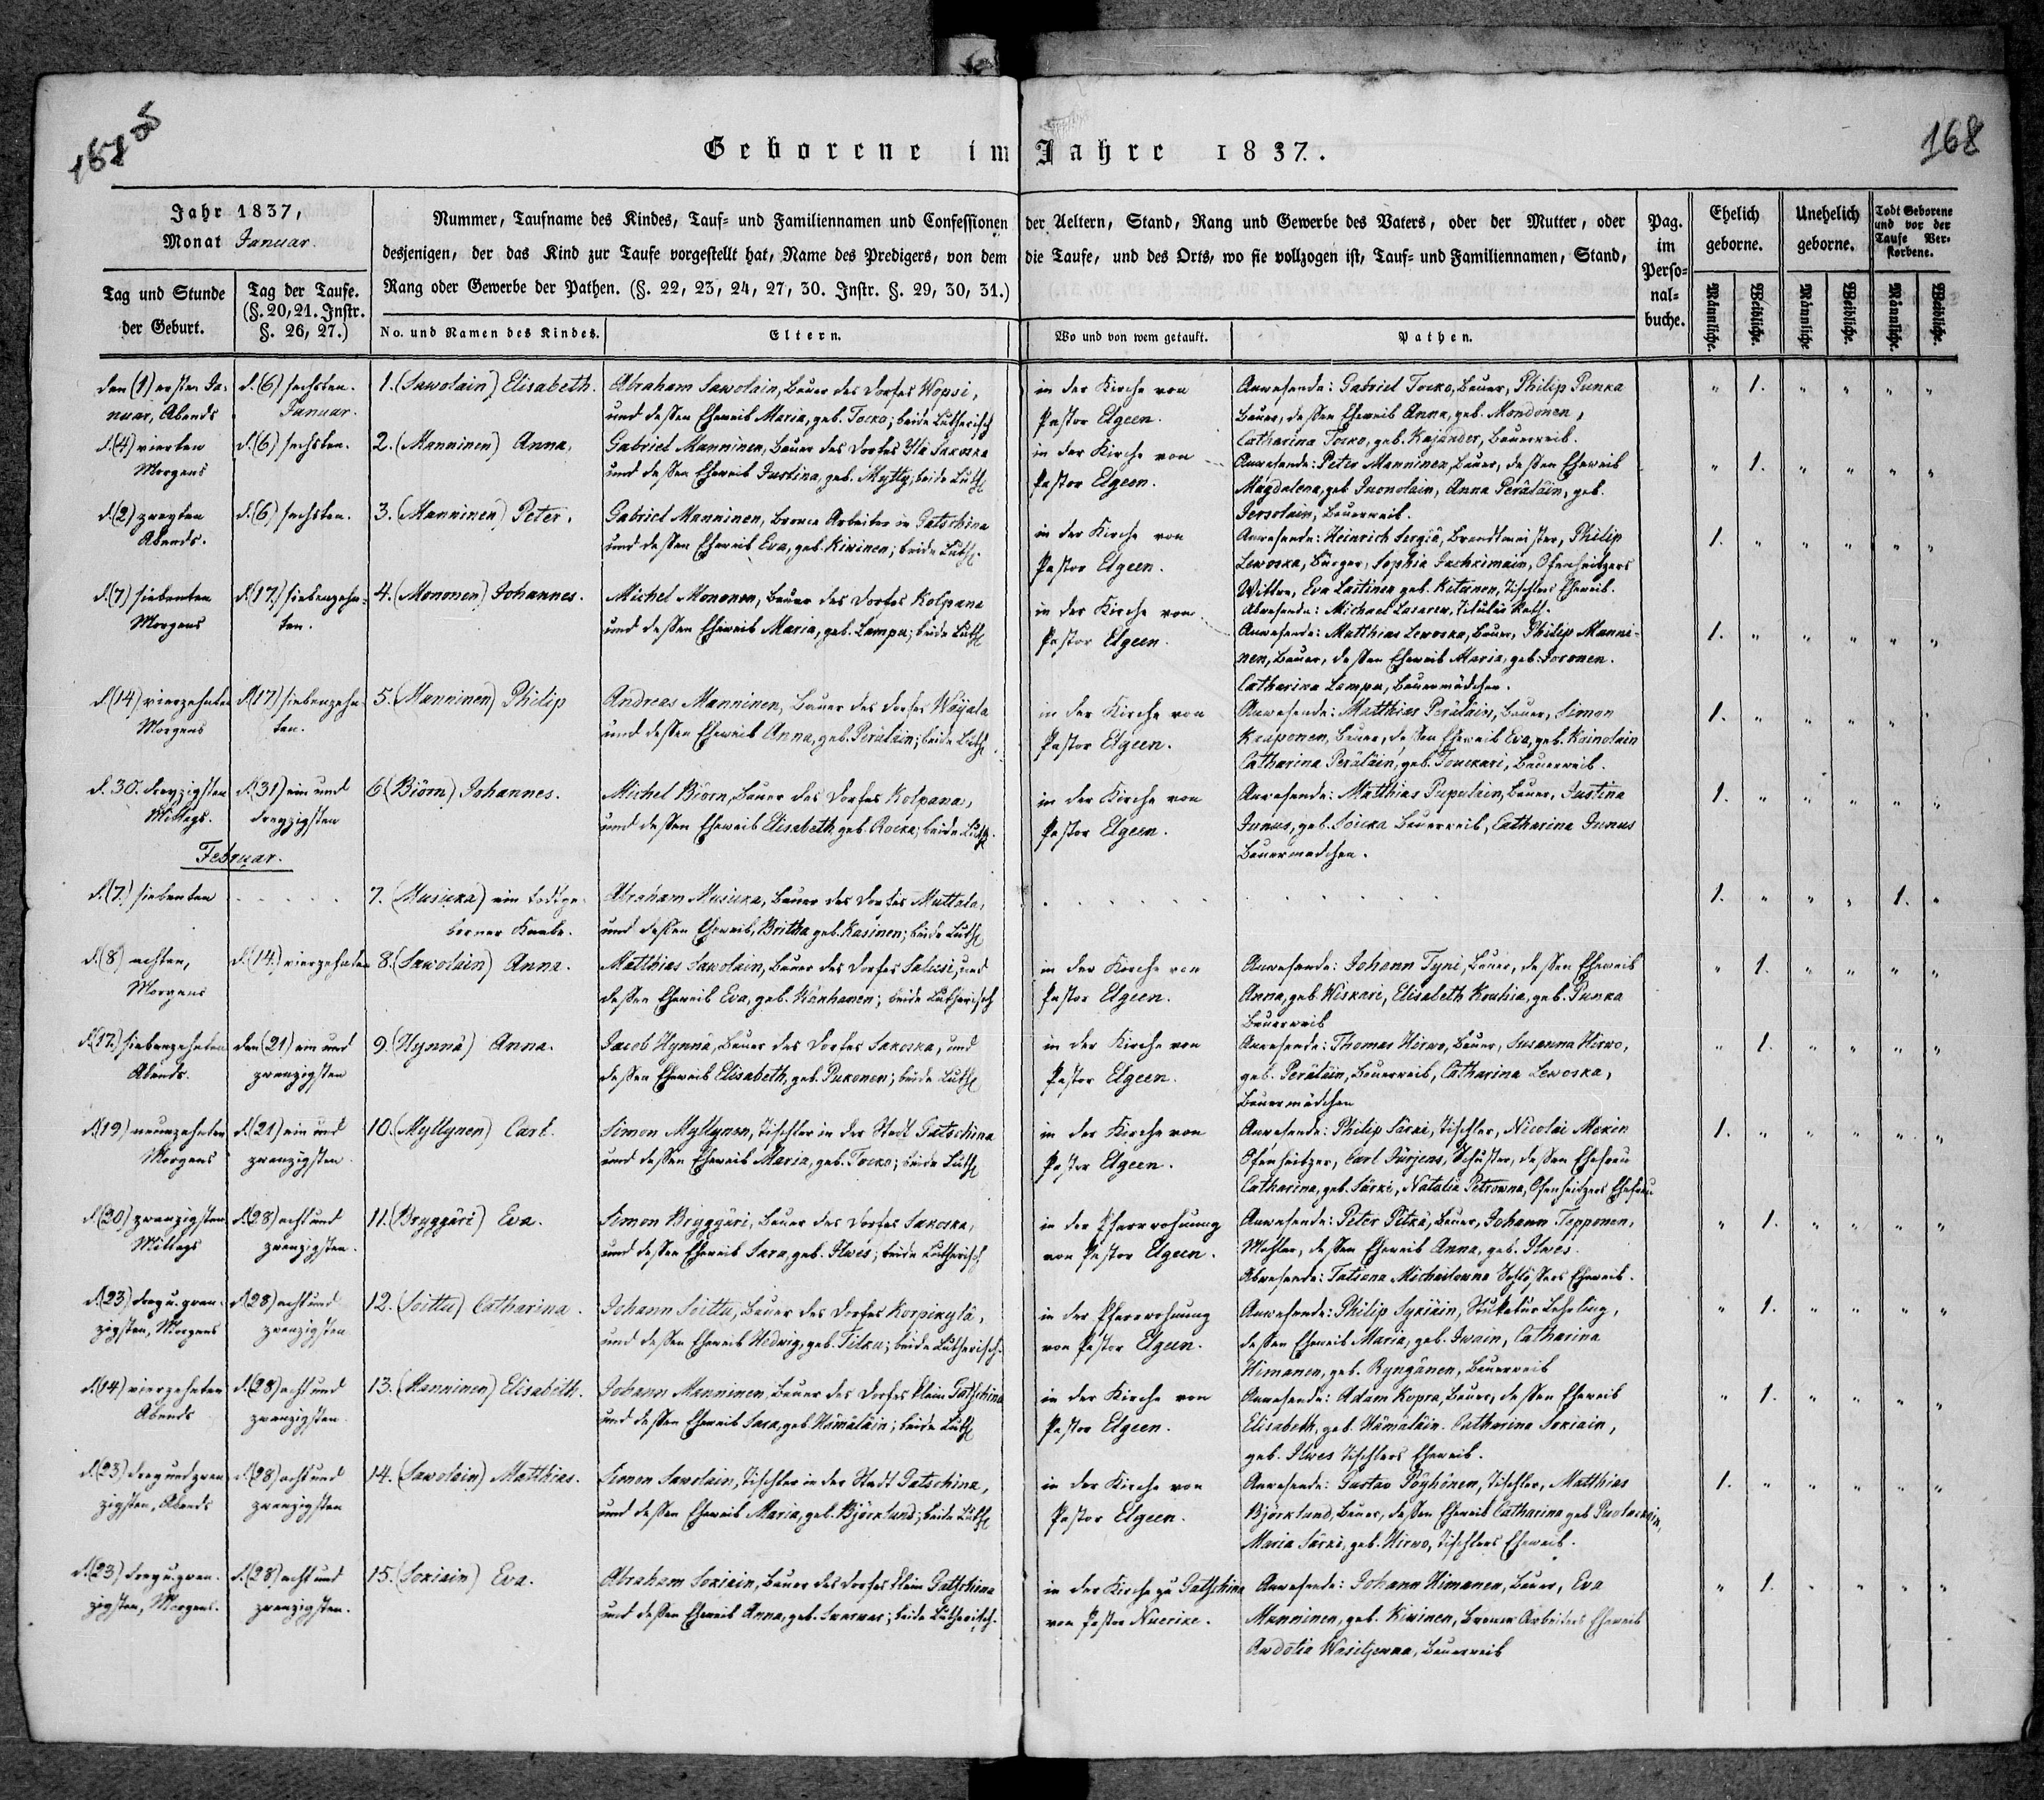 168
Geborene im Jahre 1837.
Jahr 1837,
Monat Januar.
Nummer, Taufname des Kindes, Tauf- und Familiennamen und Confessionen der Aeltern, Stand, Rang und Gewerbe des Vaters, oder der Mutter, oder
desjenigen, der das Kind zur Taufe vorgestellt hat, Name des Predigers, von dem die Taufe, und des Orts, wo sie vollzogen ist, Tauf- und Familiennamen, Stand,
Rang oder Gewerbe der Pathen. (§. 22, 23, 24, 27, 30. Instr. §. 29, 30, 31.)
Tag und Stunde
der Geburt.
Tag der Taufe.
(§. 20, 21. Instr.
§. 26, 27.)
No. und Namen des Kindes.
Eltern.
Wo und von wem getauft.
Pathen.
Pag.
im
Perso-
nal-
buche.
Ehelich
geborne.
Unehelich
geborne.
Todt Geborene
und vor der
Taufe Ver-
storbene.
Männliche.
Weibliche.
Männliche
Weibliche.
Männliche.
Weibliche.
den (1) ersten Ja-
nuar, Abends
d. (6) sechsten.
Januar.
1. (Sawolain) Elisabeth.
Abraham Sawolain, Bauer des Dorfes Wopsi,
und deßen Eheweib Maria, geb. Tocko; beide Lutherisch
in der Kirche von
Pastor Elgeen.
Anwesende: Gabriel Tocko, Bauer, Philip Punka
Bauer, deßen Eheweib Anna, geb. Mondonen,
Catharina Tocko, geb. Kajander, Bauerweib.
" 1. " " " "
d. (4) vierten
Morgens
d. (6) sechsten.
2. (Manninen) Anna,
Gabriel Manninen, Bauer des Dorfes Ylä Sakoska
und deßen Eheweib Justina, geb. Mylly; beide Luth
in der Kirche von
Pastor Elgeen.
Anwesende: Peter Manninen, Bauer, deßen Eheweib
Magdalena, geb. Juonolain, Anna Peräläin, geb.
Bauerweib.
" 1. " " " "
d. (2) zweyten
Abends.
d. (6) sechsten.
3. (Manninen) Peter.
Gabriel Manninen, Bronce Arbeiter in Gatschina
und deßen Eheweib Eva, geb. Kivinen; beide Luth.
in der Kirche von
Pastor Elgeen.
Anwesende: Heinrich Sergiä, Brandtmeister, Philip
Lewoska, Bürger, Sophia Ofenheitzers
Wittwe, Eva Lastinen geb. Kitunen, Tischlers Eheweib.
Abwesende: Michael Lasarew, Titulär Rath.
1. " " " " "
d. (7) siebenten
Morgens
d. (17.) siebenzehn-
ten.
4. (Mononen) Johannes.
Michel Mononen, Bauer des Dorfes Kolpana
und deßen Eheweib Maria, geb. Lampu; beide Luth
in der Kirche von
Pastor Elgeen.
Anwesende: Matthias Lewoska, Bauer, Philip Manni-
nen, Bauer, deßen Eheweib Maria, geb. Soronen.
Catharina Lampu, Bauermädchen.
1. " " " " "
d. (14) vierzehnten
Morgens
d. (17) siebenzehn-
ten.
5. (Manninen) Philip
Andreas Manninen, Bauer des Dorfes Wäyälä
und deßen Eheweib Anna, geb. Peräläin; beide Luth
in der Kirche von
Pastor Elgeen.
Anwesende: Matthias Peräläin, Bauer, Simon
Kruponen, Bauer, deßen Eheweib Eva, geb. Koinolain
Catharina Peräläin, geb. Touckari, Bauerweib.
1. " " " " "
d. 30. dreyzigsten
Mittags.
d. (31) ein und
dreyzigsten
6 (Biörn) Johannes.
Michel Biörn, Bauer des Dorfes Kolpana,
und deßen Eheweib Elisabeth geb. Rocka; beide Luth.
in der Kirche von
Pastor Elgeen.
Anwesende: Matthias Pupulain, Bauer, Justina
Junus, geb. Soicka Bauerweib, Catharina Junus
Bauermädchen.
1. " " " " "
Februar.
d. (7.) siebenten
. . . . .
7. (Musicka) ein todtge-
borner Knabe.
Abraham Musicka, Bauer des Dorfes Muttala,
und deßen Eheweib, Britha geb. Kasinen; beide Luth
1. " " " 1. "
d. (8) achten,
Morgens
d. (14.) vierzehnten
8. (Sawolain) Anna.
Matthias Sawolain, Bauer des Dorfes Salicsi, und
deßen Eheweib Eva, geb. Kanhanen; beide Lutherisch
in der Kirche von
Pastor Elgeen.
Anwesende: Johann Tyni, Bauer, deßen Eheweib
Anna, geb. Wiskari, Elisabeth Kouhia, geb. Punka
Bauerweib
" 1. " " " "
d. (17.) siebenzehnten
Abends.
den (21) ein und
zwanzigsten
9. (Hynnä) Anna.
Jacob Hynnä, Bauer des Dorfes Sakoska, und
deßen Eheweib Elisabeth, geb. Pukonen; beide Luth
in der Kirche von
Pastor Elgeen.
Anwesende: Thomas Hirwo, Bauer, Susanna Hirwo,
geb. Peräläin, Bauerweib, Catharina Lewoska,
Bauermädchen
" 1. " " " "
d. (19) neunzehnten
Morgens
d. (21) ein und
zwanzigsten
10. (Myllynen) Carl.
Simon Myllynen, Tischler in der Stadt Gatschina
und deßen Eheweib Maria, geb. Tocko; beide Luth
in der Kirche von
Pastor Elgeen.
Anwesende: Philip Särki, Tischler, Nicolai Mokin
Ofenheitzer, Carl Jürjens, Schuster, deßen Ehefrau
Catharina, geb. Särki, Natalia Petrowna, Ofenheitzers Ehefrau
1. " " " " "
d. (20) zwanzigsten
Mittags
d. (28) acht und
zwanzigsten.
11. (Bryggäri) Eva.
Simon Bryggäri, Bauer des Dorfes Sakoska,
und deßen Eheweib Sara, geb. Ilwes; beide Lutherisch
in der Pfarrwohnung
von Pastor Elgeen.
Anwesende: Peter Pitkä, Bauer, Johann Tepponen,
Mahler, deßen Eheweib Anna, geb. Ilwes.
Abwesende: Tatiana Michailowna Schloßers Eheweib.
" 1. " " " "
d. (23) drey u. zwan-
zigsten, Morgens
d. (28) acht und
zwanzigsten
12. (Soittu) Catharina.
Johann Soittu, Bauer des Dorfes Korpikylä,
und deßen Eheweib Hedwig, geb. Titka; beide Lutherisch.
in der Pfarrwohnung
von Pastor Elgeen.
Anwesende: Philip Sykiäin, Stukatur Lehrling,
deßen Eheweib Maria, geb. Iwain, Catharina
Himanen, geb. Ryngänen, Bauerweib
" 1. " " " "
d. (14) vierzehnten
Abends
d. (28) acht und
zwanzigsten
13. (Manninen) Elisabeth.
Johann Manninen, Bauer des Dorfes Klein Gatschina
und deßen Eheweib Sara, geb. Hämäläin; beide Luth
in der Kirche von
Pastor Elgeen.
Anwesende: Adam Kopra, Bauer, deßen Eheweib
Elisabeth, geb. Hämäläin. Catharina Sokiain,
geb. Ilwes Tischlers Eheweib.
" 1. " " " "
d. (23) drey und zwan-
zigsten, Abends
d. (28) acht und
zwanzigsten
14. (Sawolain) Matthias.
Simon Sawolain, Tischler in der Stadt Gatschina,
und deßen Eheweib Maria, geb. Björklund; beide Luth
in der Kirche von
Pastor Elgeen.
Anwesende: Gustav Pöyhönen, Tischler, Matthias
Björklund, Bauer, deßen Eheweib Catharina geb
Maria Särki, geb. Hirwo, Tischlers Eheweib.
1. " " " " "
d. (23) drey u. zwan-
zigsten, Morgens.
d. (28) acht und
zwanzigsten.
15. (Sokiain) Eva.
Abraham Sokiain, Bauer des Dorfes Klein Gatschina
und deßen Eheweib Anna, geb. beide Lutherisch.
in der Kirche zu Gatschina
von Pastor
Anwesende: Johann Himanen, Bauer, Eva
Manninen, geb. Kivinen, Bronce Arbeiters Eheweib
Awdotia Wasiljewna, Bauerweib
" 1. " " " "